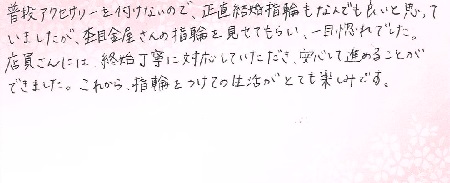 普段アクセサリーを付けないので、正直結婚指輪もなんでも良いと思って
いましたが、杢目金屋さんの指輪を見せてもらい、一目惚れでした。
店員さんには、終始丁寧に対応していただき、安心して進めることが
できました。これから、指輪をつけての生活がとても楽しみです。